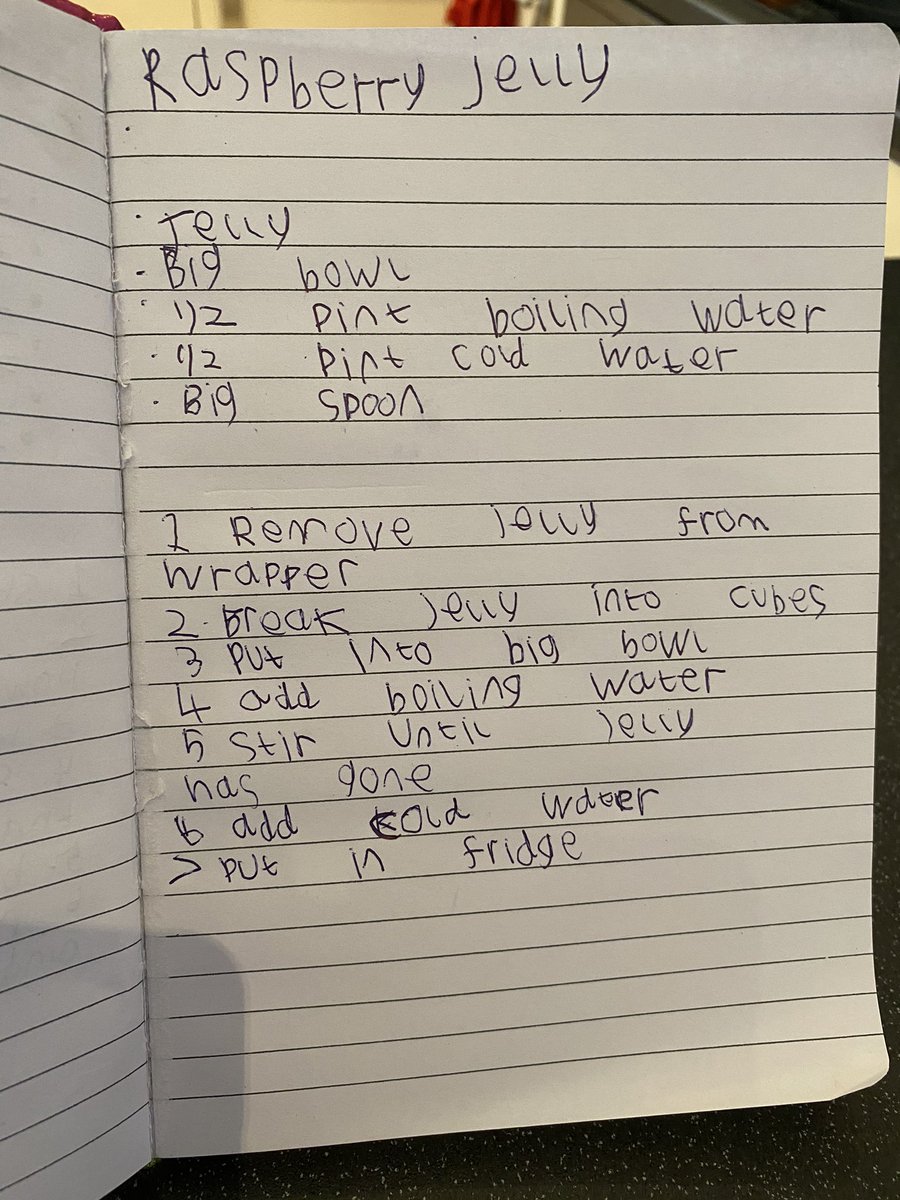 Raspberry jelly
· Jelly
· Big bowl
· 1/2 pint boiling water
· 1/2 pint cold water
· Big spoon
1 Remove jelly from
wrapper
2. break jelly into cubes
3 put into big bowl
4 add boiling water
5 Stir until jelly
has gone
6 add cold water
7 put in fridge